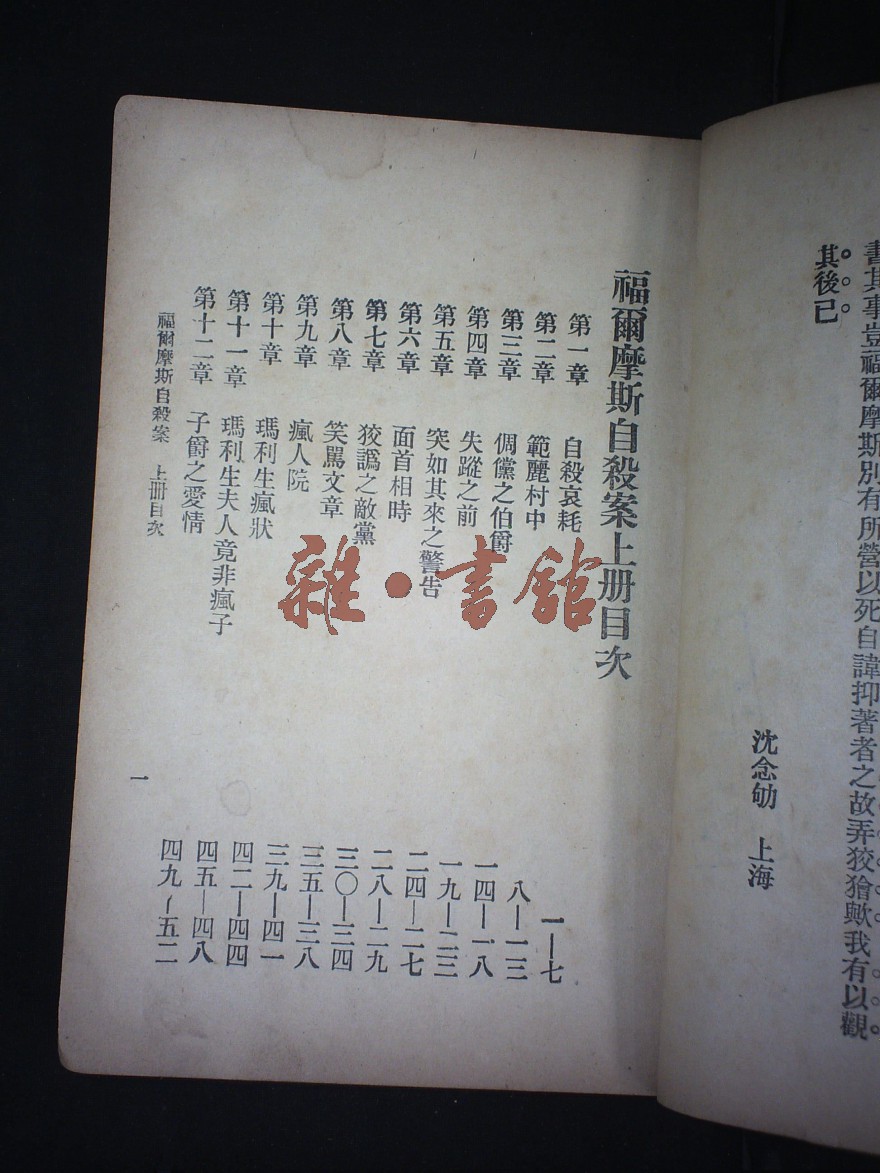 書其事豈福爾摩斯別有所營以死自諱抑著者之故弄狡獪歟我有以觀
其後已
沈念劬 上海
福爾摩斯自殺案上册目次
第一章 自殺哀耗 一—七
第二章 範麗村中 八—一三
第三章 倜儻之伯爵 一四—一八
第四章 失蹤之前 一九—二三
第五章 突如其來之警告 二四—二七
第六章 面首相時 二八—二九
第七章 狡譌之敵黨 三〇—三四
第八章 笑罵文章 三五—三八
第九章 瘋人院 三九—四一
第十章 瑪利生瘋狀 四二—四四
第十一章 瑪利生夫人竟非瘋子 四五—四八
第十二章 子爵之愛情 四九—五二
福爾摩斯自殺案 上册目次
一
雜·書館